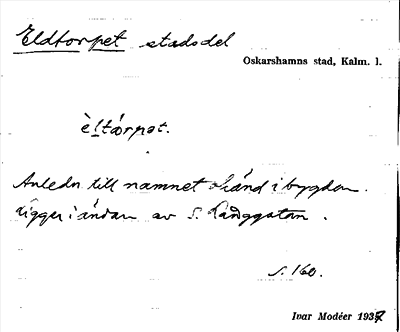 Eldtorpet stadsdel
Oskarshamns stad, Kalm. l.
èltárpət.
Anledn till namnet okänd i bygden.
Ligger i ändan av S. Långgatan.
s. 160.
Ivar Modéer 1937